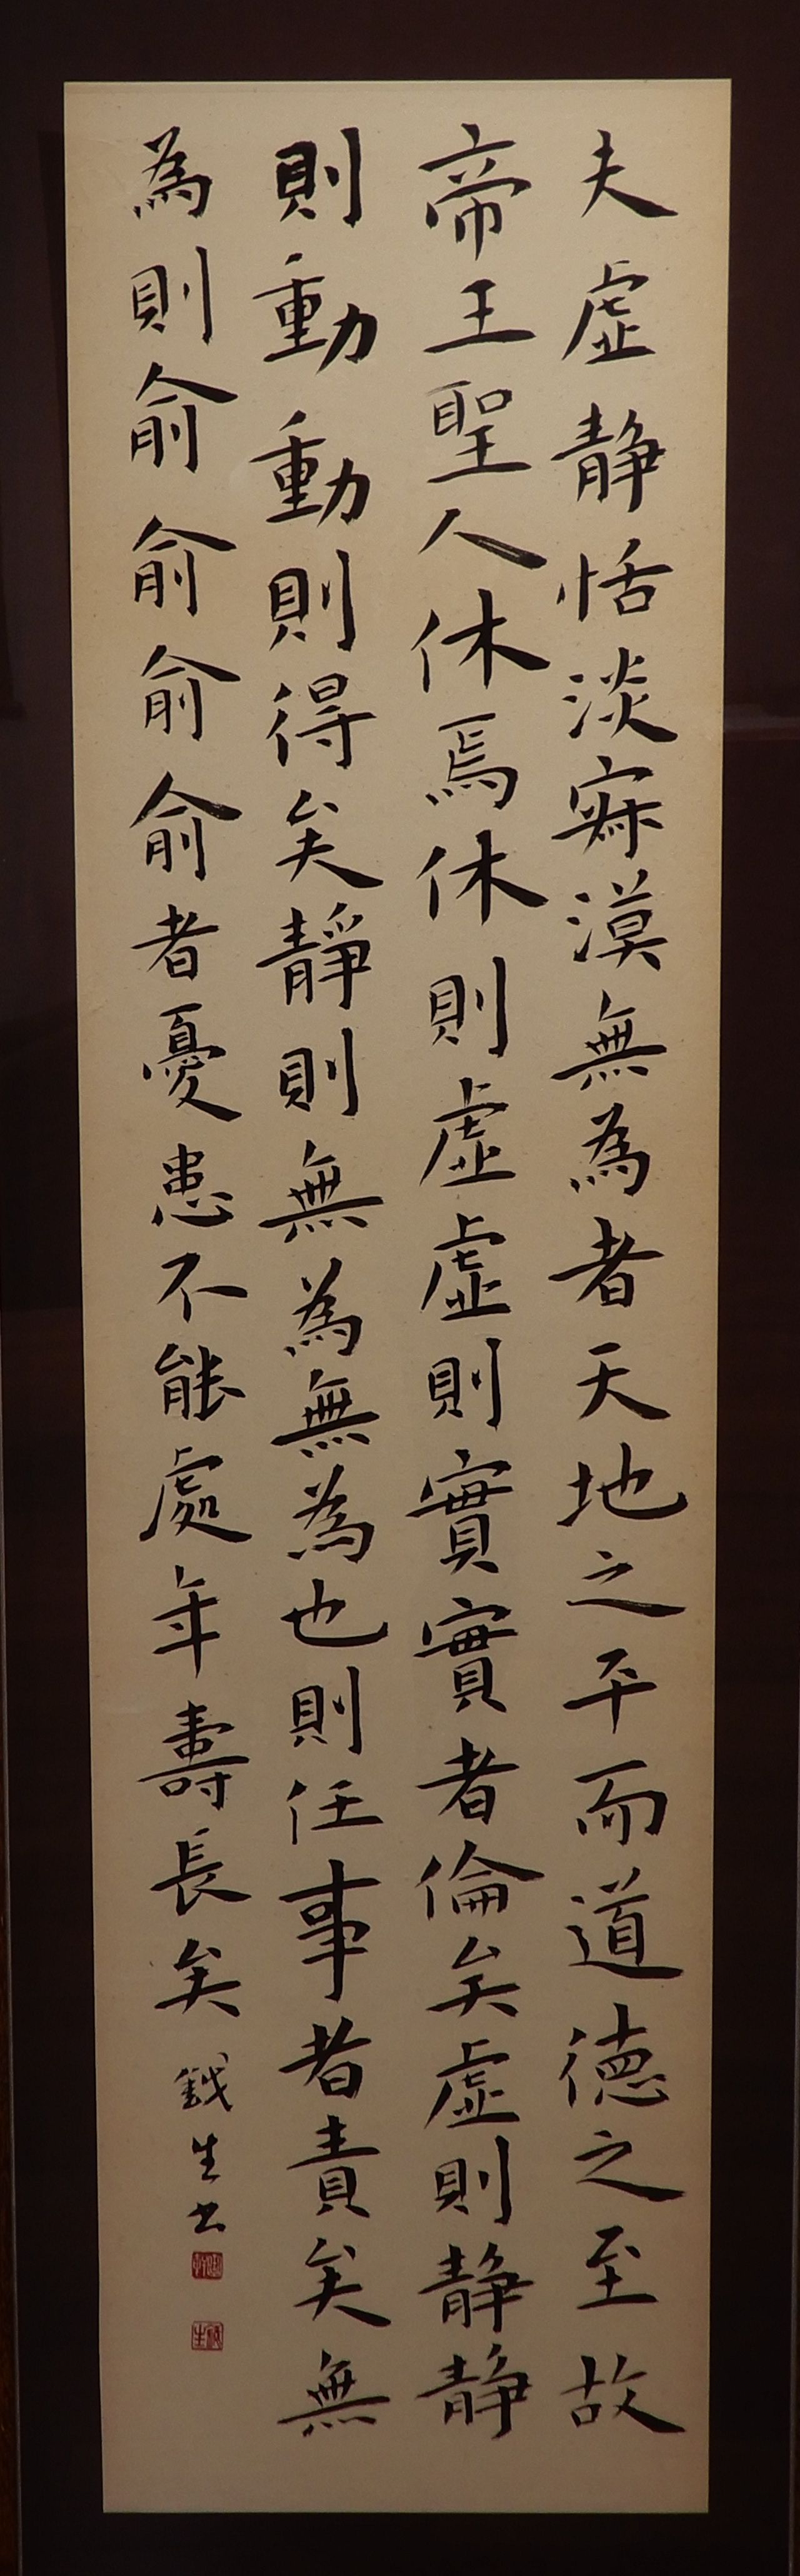 夫虛靜恬淡寂漠無為者天地之平而道德之至故
帝王聖人休焉休則虛虛則實實者倫矣虛則静静
則動動則得矣靜則無為無為也則任事者責矣無
為則俞俞俞俞者憂患不能處年壽長矣
鉞生书